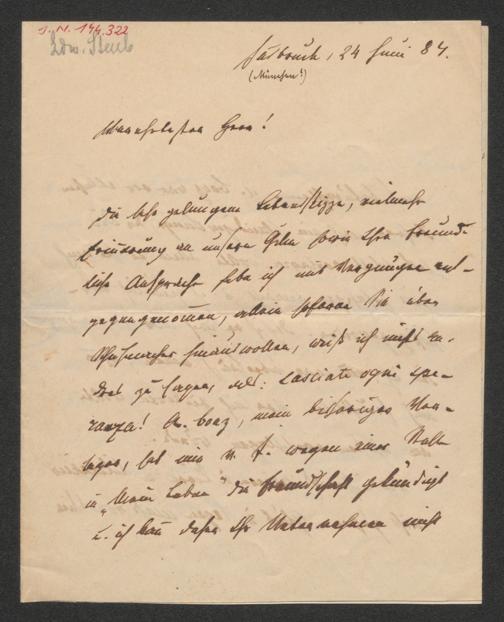 I. N. 144.322
Ludw. Steub
24 Juni 84.
(München!)
Verehrtester Herr!
Die sehr gelungene Lebensskizze, vielmehr
Erinnerung an unsern Gilm sowie Ihre freund-
liche Ansprache habe ich mit Vergnügen ent-
gegengenommen, allein soferne Sie über
hinauswollen, weiß ich nicht an-
dres zu sagen, als: Lasciate ogni spe-
ranza! A. Bonz, mein bisheriger Ver-
leger, hat mir wegen einer Stelle
in "Mein Leben" die Freundschaft gekündigt
u. ich kann daher Ihr Unternehmen nicht